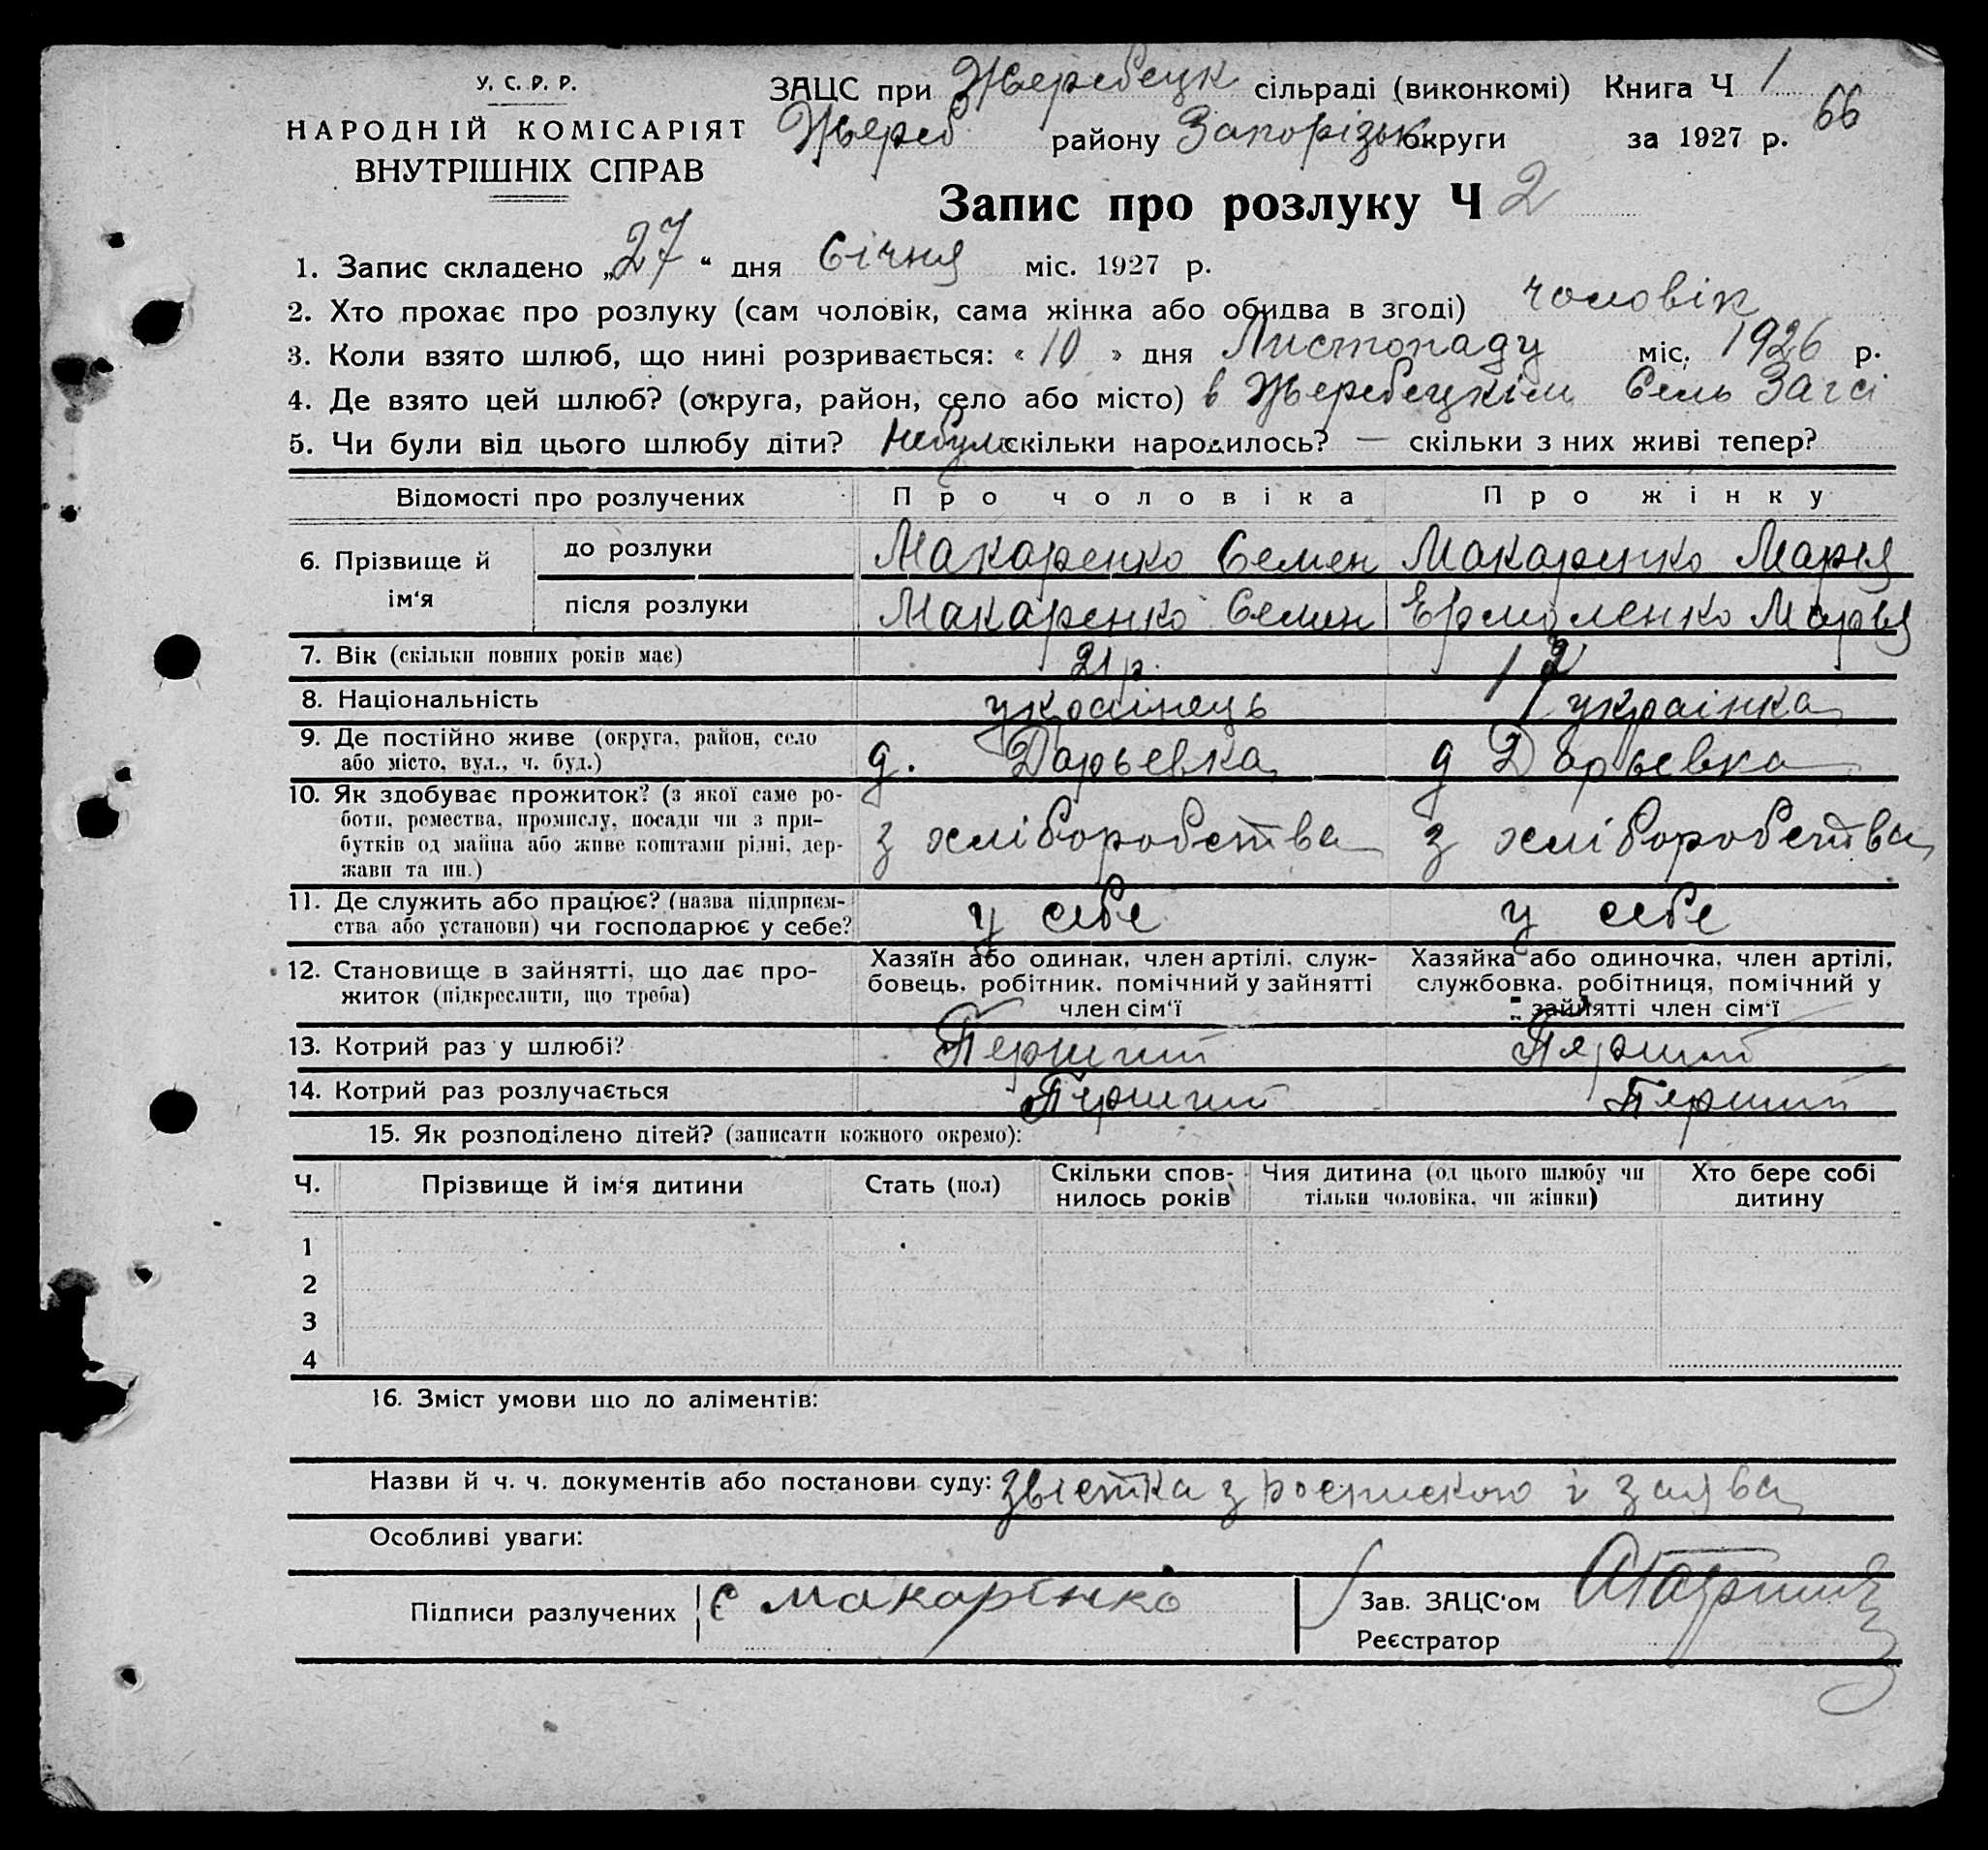 У. С. Р. Р.
НАРОДНІЙ КОМІСАРІЯТ
ВНУТРІШНІХ СПРАВ
ЗАЦС при Жеребецк сільраді (виконкомі) Книга Ч 1
66
Жереб району Запорізьк округи за 1927 р.
Запис про розлуку Ч 2
1. Запис складено „27“ дня Січня міс. 1927 р.
2. Хто прохає про розлуку (сам чоловік, сама жінка або обидва в згоді) чоловік
3. Коли взято шлюб, що нині розривається: «10» дня Листопаду міс. 1926 р.
4. Де взято цей шлюб? (округа, район, село або місто) в Жеребецкім Сель Загсі
5. Чи були від цього шлюбу діти? Небуло скільки народилось? — скільки з них живі тепер?
Відомості про розлучених Про чоловіка Про жінку
6. Прізвище й ім‘я
до розлуки Макаренко Семен Макаренко Марія
після розлуки Макаренко Семен Ермоленко Марья
7. Вік (скільки повних років має) 21 р.
8. Національність украінець украінка
9. Де постійно живе (округа, район, село
або місто, вул., ч. буд.) д. Дарьевка д Дарьевка
10. Як здобуває прожиток? (з якої саме ро-
боти, ремества, промислу, посади чи з при-
бутків од майна або живе коштами рідні, дер-
жави та ин.) з хліборобства з хліборобства
11. Де служить або працює? (назва підприєм-
ства або установи) чи господарює у себе? у себе у себе
12. Становище в зайнятті, що дає про-
житок (підкреслити, що треба)
Хазяїн або одинак, член артілі, служ-
бовець, робітник, помічний у зайнятті
член сім‘ї
Хазяйка або одиночка, член артілі,
службовка, робітниця, помічний у
зайнятті член сім‘ї
13. Котрий раз у шлюбі? Перший Перший
14. Котрий раз розлучається Перший Перший
15. Як розподілено дітей? (записати кожного окремо):
Ч. Прізвище й ім‘я дитини Стать (пол) Скільки спов-
нилось років Чия дитина (од цього шлюбу чи
тільки чоловіка, чи жінки) Хто бере собі
дитину
1
2
3
4
16. Зміст умови що до аліментів:
Назви й ч. ч. документів або постанови суду: звістка з роспискою і заява
Особливі уваги:
Підписи разлучених С Макарінко
Зав. ЗАЦС‘ом
Реєстратор